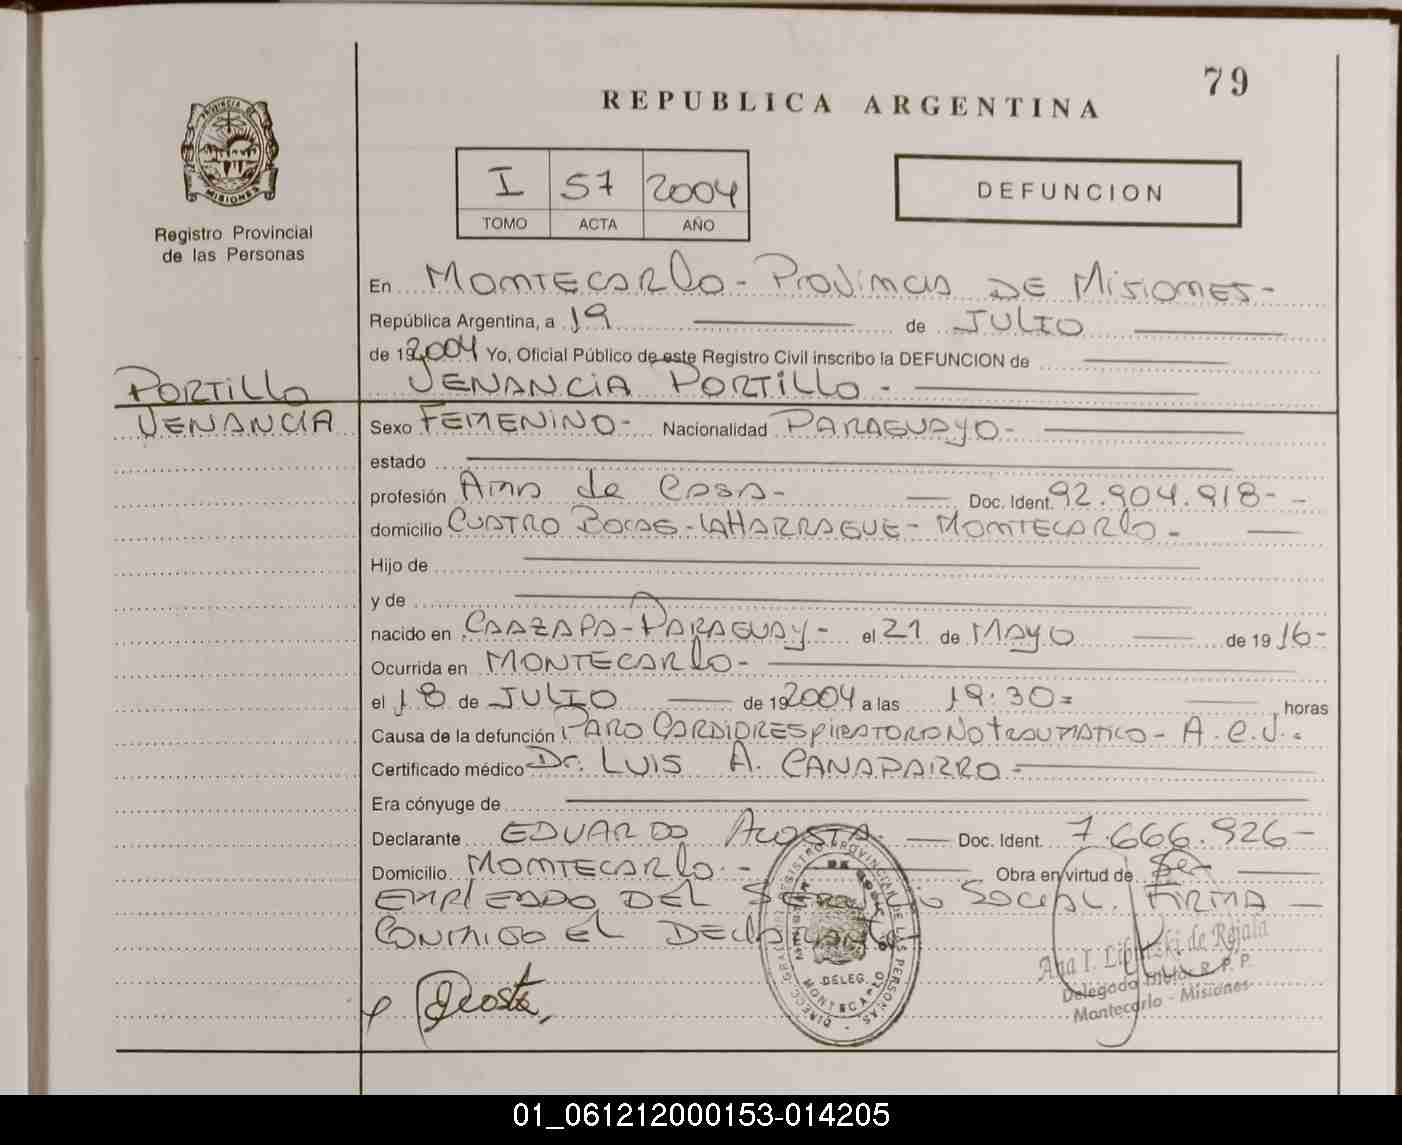 79
REPUBLICA ARGENTINA
PROVINCIA DE
MISIONES
Registro Provincial
de las Personas
I 57 2004
TOMO ACTA AÑO
DEFUNCION
En MONTECARLO - PROVINCIA DE MISIONES -
República Argentina, a 19 de JULIO
de 192004 Yo, Oficial Público de este Registro Civil inscribo la DEFUNCION de
VENANCIA PORTILLO -
PORTILLO
VENANCIA
Sexo FEMENINO - Nacionalidad PARAGUAYO -
estado
profesión Ama de Casa - Doc. Ident. 92.904.918 - -
domicilio CUATRO BOCAS - LAHARRAGUE - MONTECARLO -
Hijo de
y de
nacido en CAAZAPA - PARAGUAY - el 21 de MAYO de 19 16 -
Ocurrida en MONTECARLO -
el 18 de JULIO de 192004 a las 19:30= horas
Causa de la defunción PARO CARDIORESPIRATORIO NO TRAUMATICO - A.C.V. -
Certificado médico Dr. LUIS A. CANAPARRO -
Era cónyuge de
Declarante EDUARDO ACOSTA - Doc. Ident. 7.666.926 -
Domicilio MONTECARLO - Obra en virtud de Ser
EMPLEADO DEL SERVICIO SOCIAL. FIRMA
CONMIGO EL DECLARANTE
DIRECC. GRAL. DEL REGISTRO PROVINCIAL DE LAS PERSONAS
DELEG.
MONTECARLO
Acosta
Ana I. de Rojala
Delegada R. P. P.
Montecarlo - Misiones
01_061212000153-014205